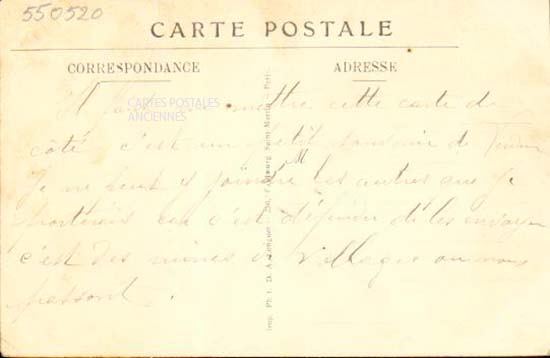 550520
CARTE POSTALE
CORRESPONDANCE
ADRESSE
CARTES POSTALES
ANCIENNES
Il mettre cette carte de
côté c'est un petit souvenir de
Je ne peux y joindre les autres que je
car c'est de les envoyer
c'est des ruines de villages ou nous
passont.
Imp. Ph. t. D. A. Longuet Faubourg Saint Martin Paris